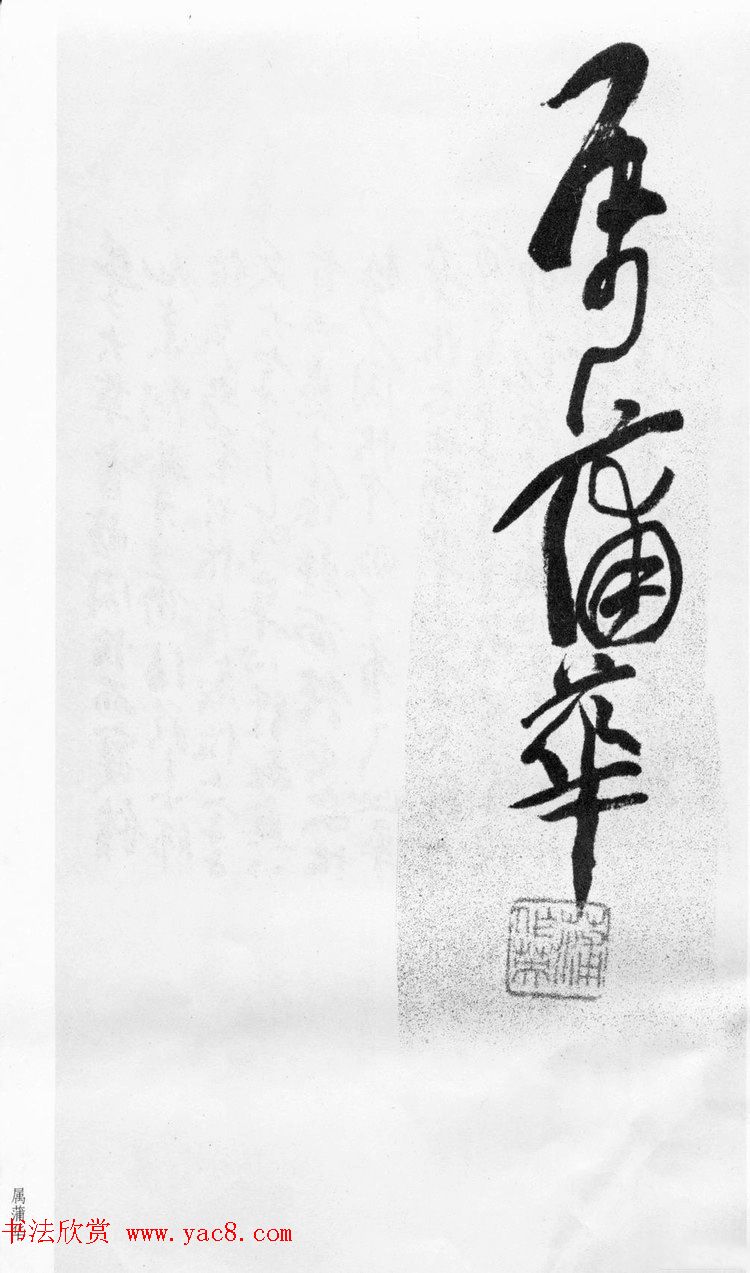 属蒲華
蒲作英
属蒲华
书法欣赏 www.yac8.com